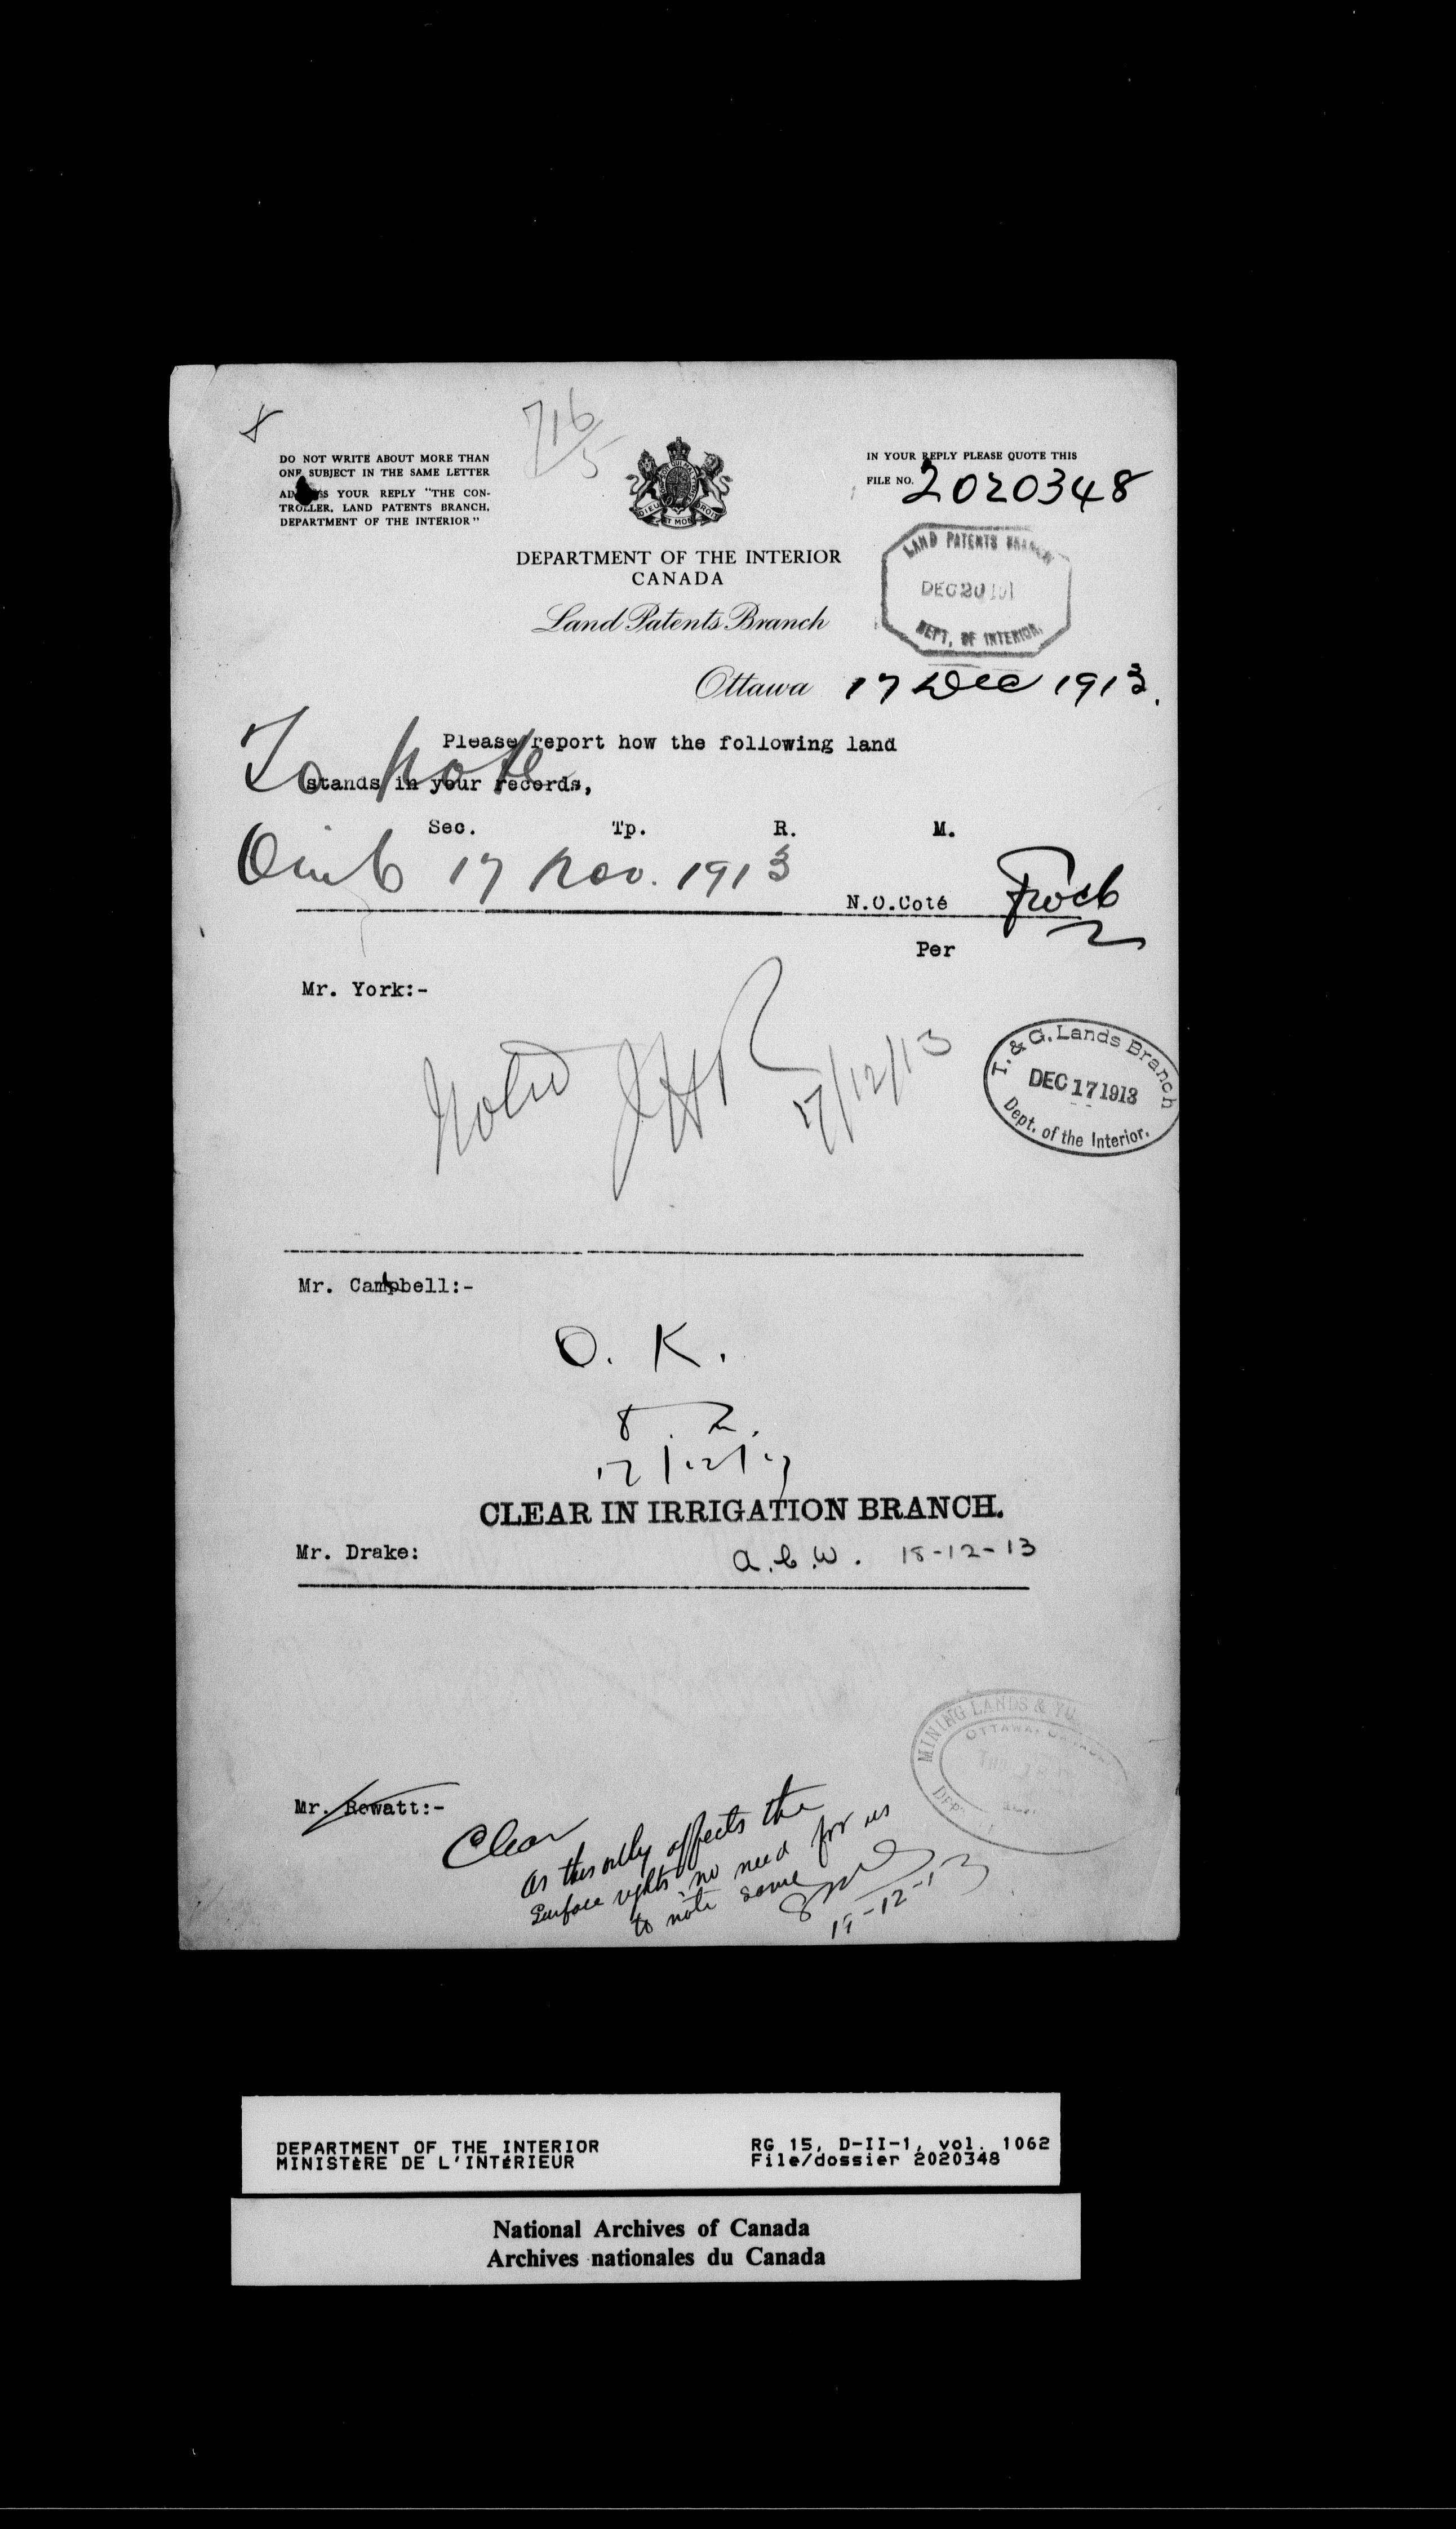 716/5
DO NOT WRITE ABOUT MORE THAN
ONE SUBJECT IN THE SAME LETTER
ADDRESS YOUR REPLY "THE CON-
TROLLER, LAND PATENTS BRANCH,
DEPARTMENT OF THE INTERIOR"
IN YOUR REPLY PLEASE QUOTE THIS
FILE NO. 2020348
DIEU ET MON DROIT
DEPARTMENT OF THE INTERIOR
CANADA
Land Patents Branch
LAND PATENTS BRANCH
DEC 20 191
DEPT. OF INTERIOR.
Ottawa 17 Dec 1913.
Please report how the following land
stands in your records,
To Note
Sec. Tp. R. M.
17 Nov. 1913
N.O.Coté
Per
Mr. York:-
Noted JHR 17/12/13
T. & G. Lands Branch
DEC 17 1913
Dept. of the Interior.
Mr. Campbell:-
O. K.
CLEAR IN IRRIGATION BRANCH.
Mr. Drake:
a.b.w. 18-12-13
MINING LANDS & YU
OTTAWA,
Mr. Rowatt:-
Clear
as this only affects the
Surface rights, no need for us
to note same
18-12-13
DEPARTMENT OF THE INTERIOR
MINISTÈRE DE L'INTÉRIEUR
RG 15, D-II-1, vol. 1062
File/dossier 2020348
National Archives of Canada
Archives nationales du Canada